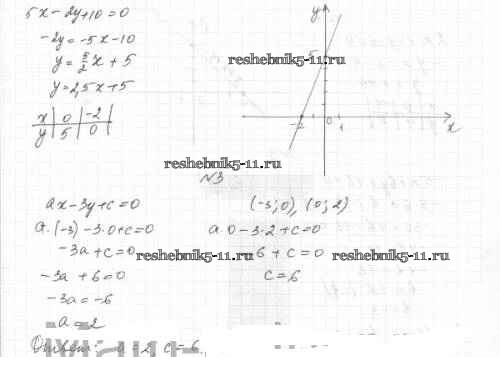 5x-2y+10=0
-2y=-5x-10
y=5/2x+5
y=2,5x+5
x | 0 | -2
y | 5 | 0
y
5
-2 0 1
x
reshebnik5-11.ru
reshebnik5-11.ru
N3
ax-3y+c=0 (-3;0), (0;2)
a·(-3)-3·0+c=0 a·0-3·2+c=0
-3a+c=0 reshebnik5-11.ru 6+c=0 reshebnik5-11.ru
-3a+6=0 c=6
-3a=-6
a=2
Ответ: a=2, c=6.